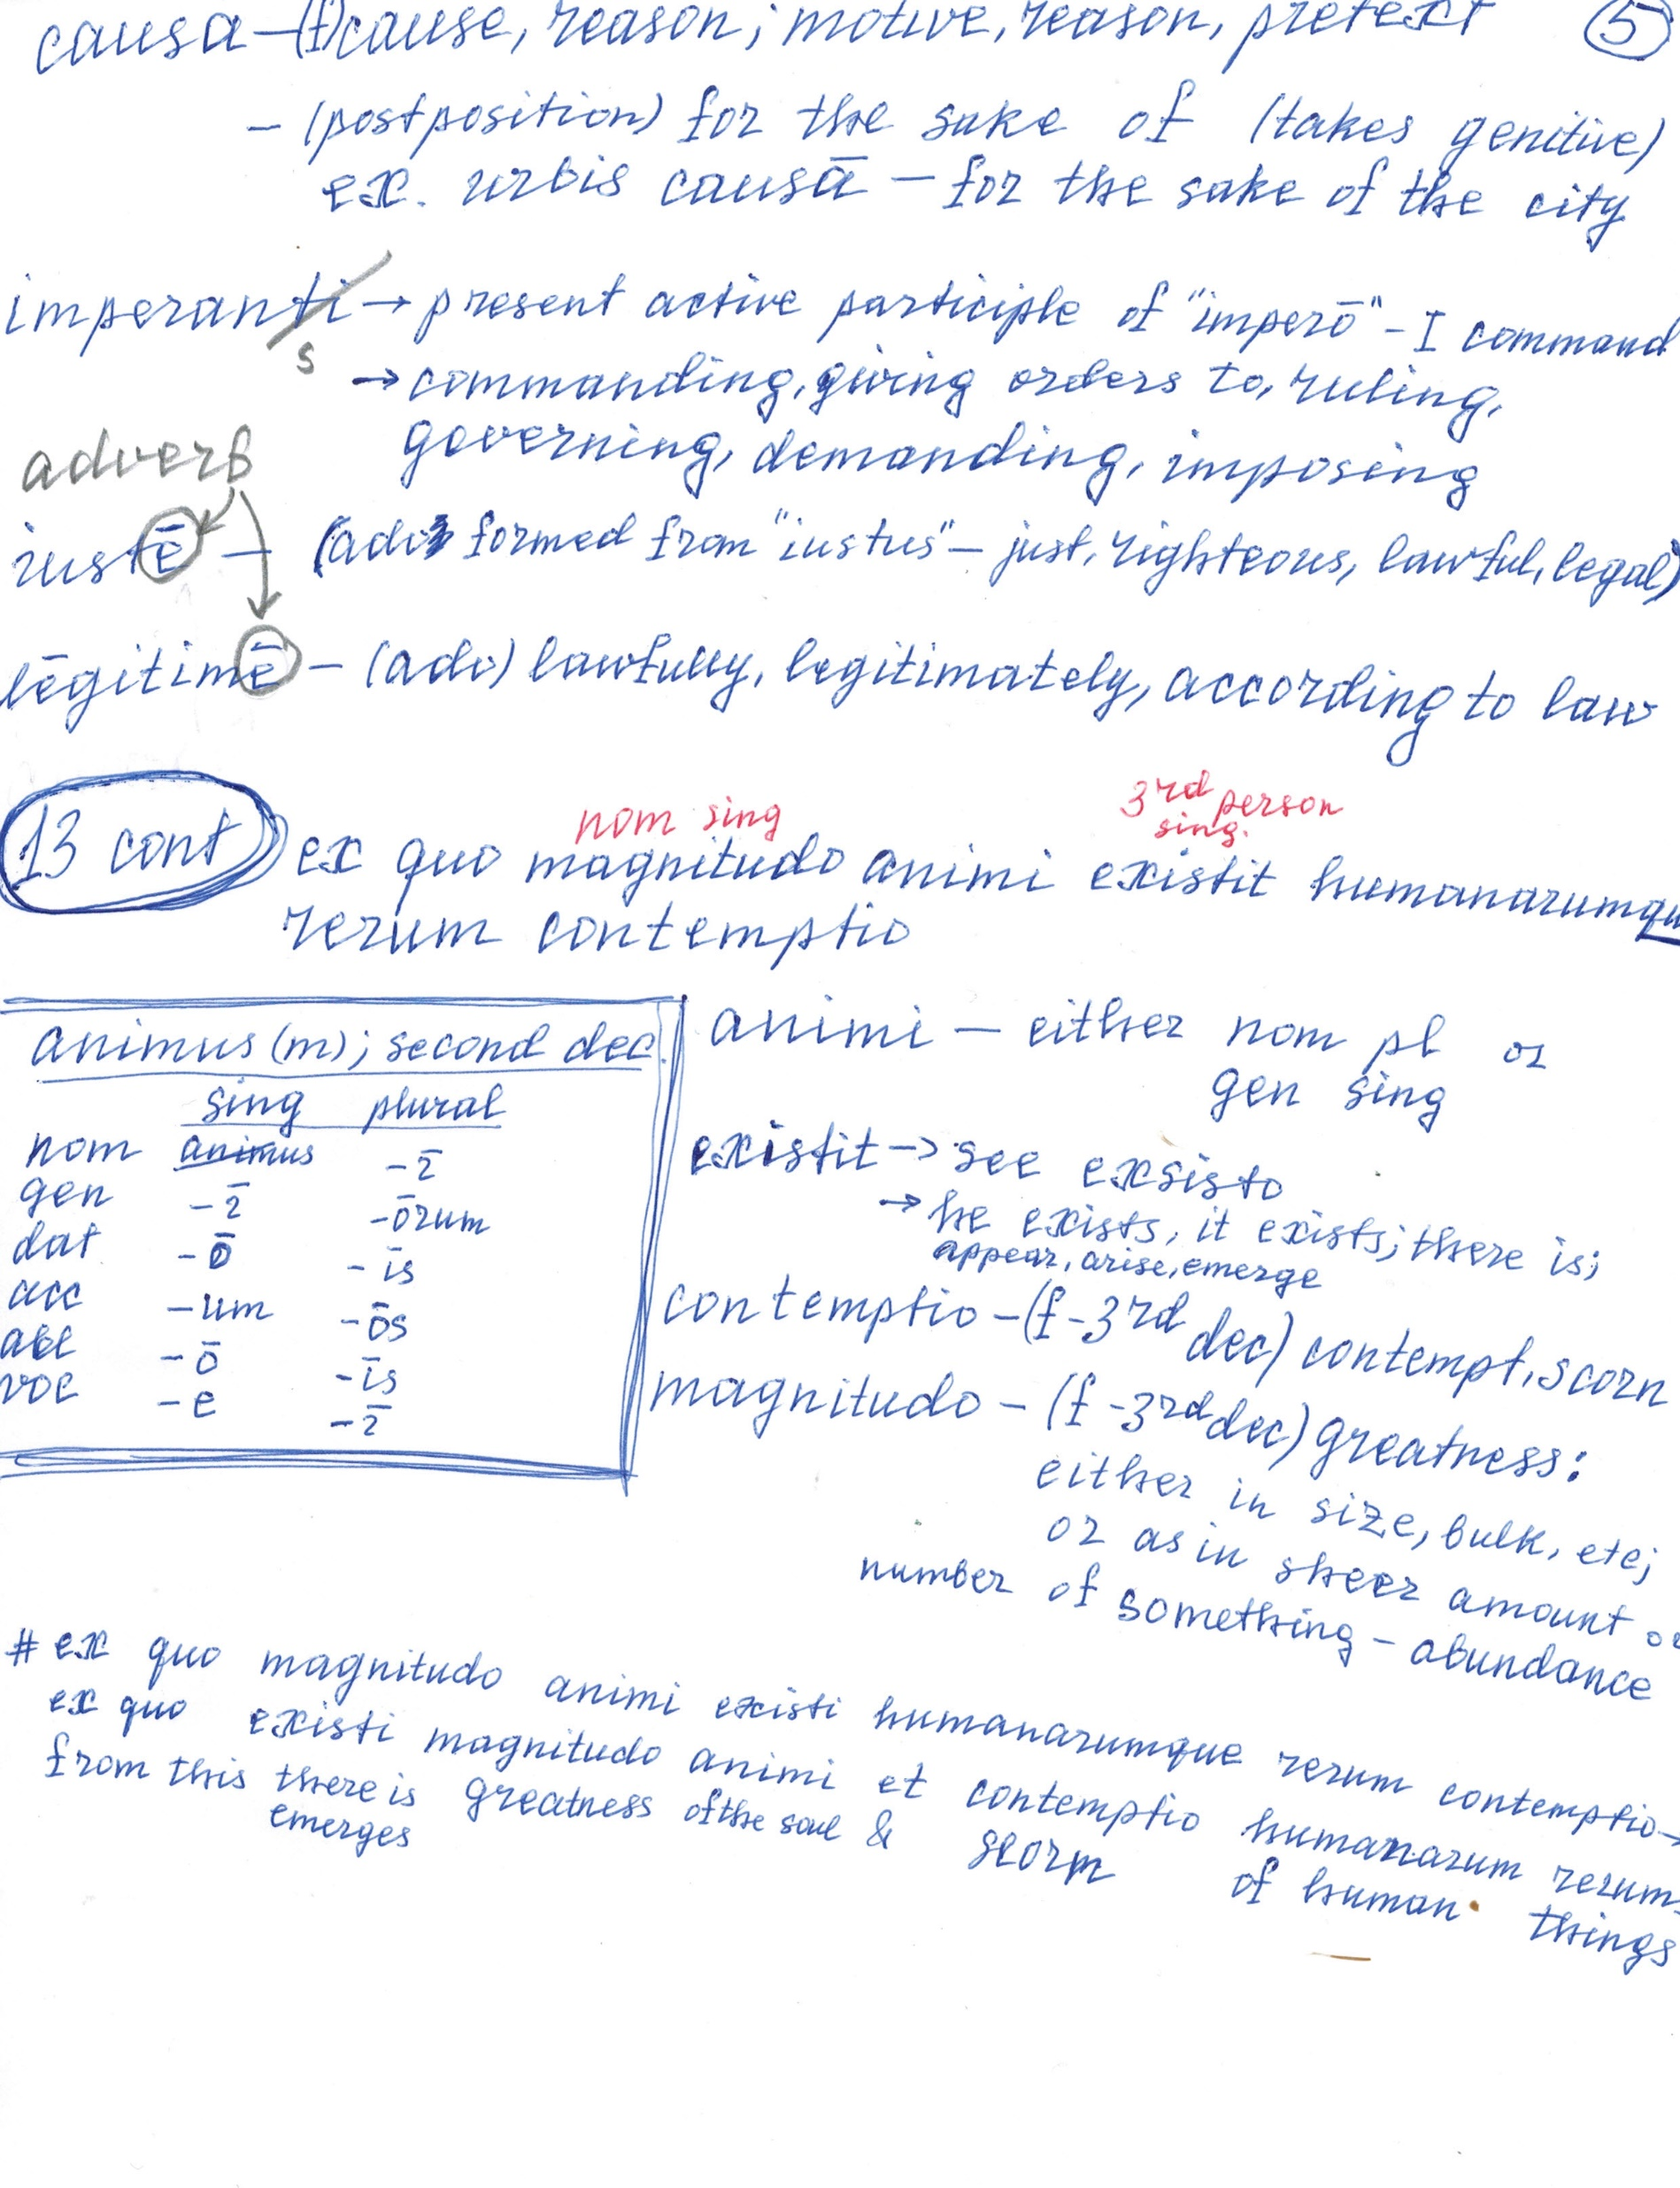 causa – (f) cause, reason; motive, reason, pretext ⑤
– (postposition) for the sake of (takes genitive)
ex. urbis causā – for the sake of the city
imperanti → present active participle of "imperō" – I command
s
→ commanding, giving orders to, ruling,
governing, demanding, imposing
adverb
iustē – (adv formed from "iustus" – just, righteous, lawful, legal)
lēgitimē – (adv) lawfully, legitimately, according to law
nom sing 3rd person
sing.
13 cont ex quo magnitudo animi existit humanarumqu
rerum contemptio
animus (m); second dec.
sing plural
nom animus -ī
gen -ī -ōrum
dat -ō -īs
acc -um -ōs
abl -ō -īs
voc -e -ī
animi – either nom pl or
gen sing
existit → see exsisto
→ he exists, it exists; there is;
appear, arise, emerge
contemptio – (f - 3rd dec) contempt, scorn
magnitudo – (f - 3rd dec) greatness:
either in size, bulk, etc;
or as in sheer amount or
number of something – abundance
# ex quo magnitudo animi existi humanarumque rerum contemptio →
ex quo existi magnitudo animi et contemptio humanarum rerum
from this there is greatness of the soul & scorn of human things
emerges